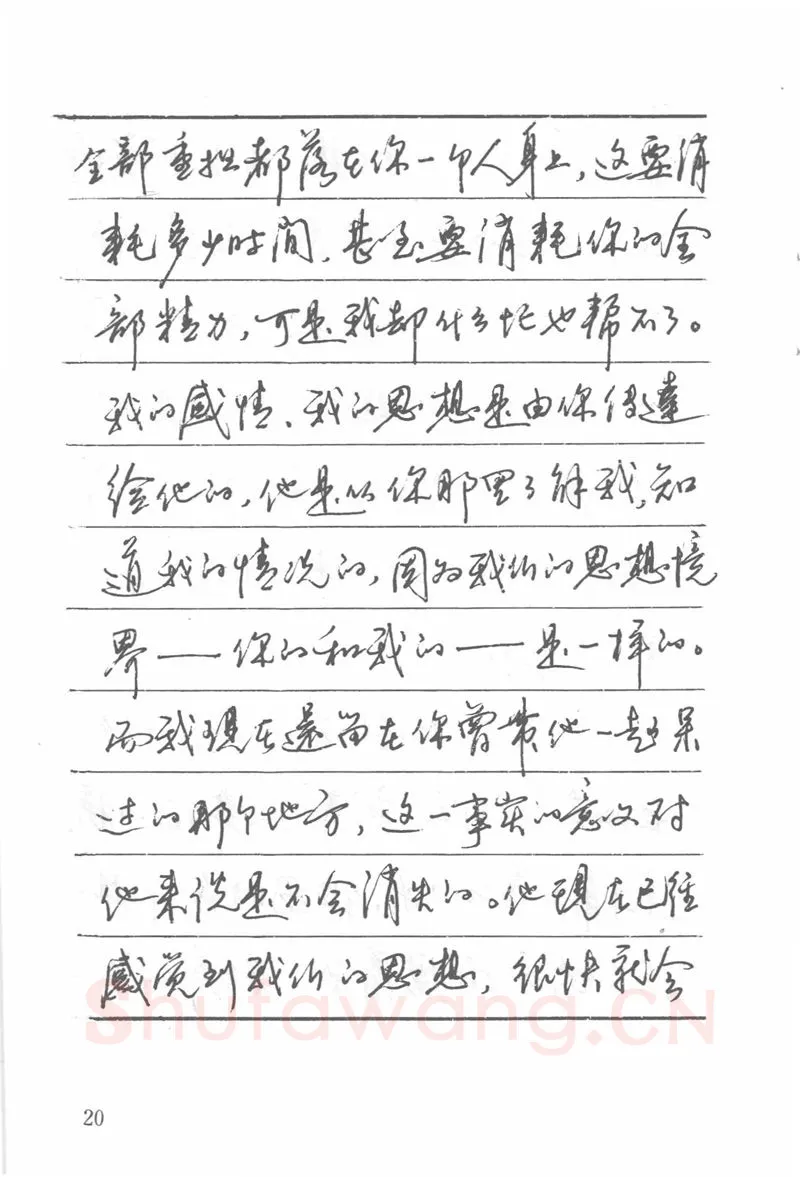 全部重担都落在你一个人身上，这要消
耗多少时间，甚至要消耗你的全
部精力，可是我却什么忙也帮不了。
我的感情、我的思想是由你传達
给他的，他是从你那里了解我，知
道我的情况的，因为我们的思想境
界——你的和我的——是一样的。
而我现在還留在你曾带他一起呆
过的那个地方，这一事实的意义对
他来说是不会消失的。他现在已经
感觉到我们的思想，很快就会
Shufawang.CN
20